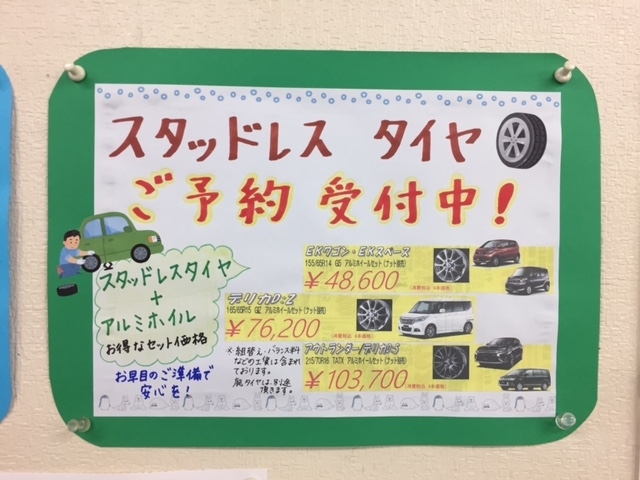 スタッドレス タイヤ
ご予約 受付中!
スタッドレスタイヤ
+
アルミホイル
お得なセット価格
お早目のご準備で
安心を!
EKワゴン・EKスペース
155/65R14 G5 アルミホイールセット(ナット別売)
¥48,600
(消費税込 4本価格)
デリカD:2
165/65R15 GZ アルミホイールセット(ナット別売)
¥76,200
(消費税込 4本価格)
※組替え・バランス料
などの工賃は含まれ
ております。
廃タイヤは別途
頂きます。
アウトランダー/デリカD5
215/70R16 TATX アルミホイールセット(ナット別売)
¥103,700
(消費税込 4本価格)